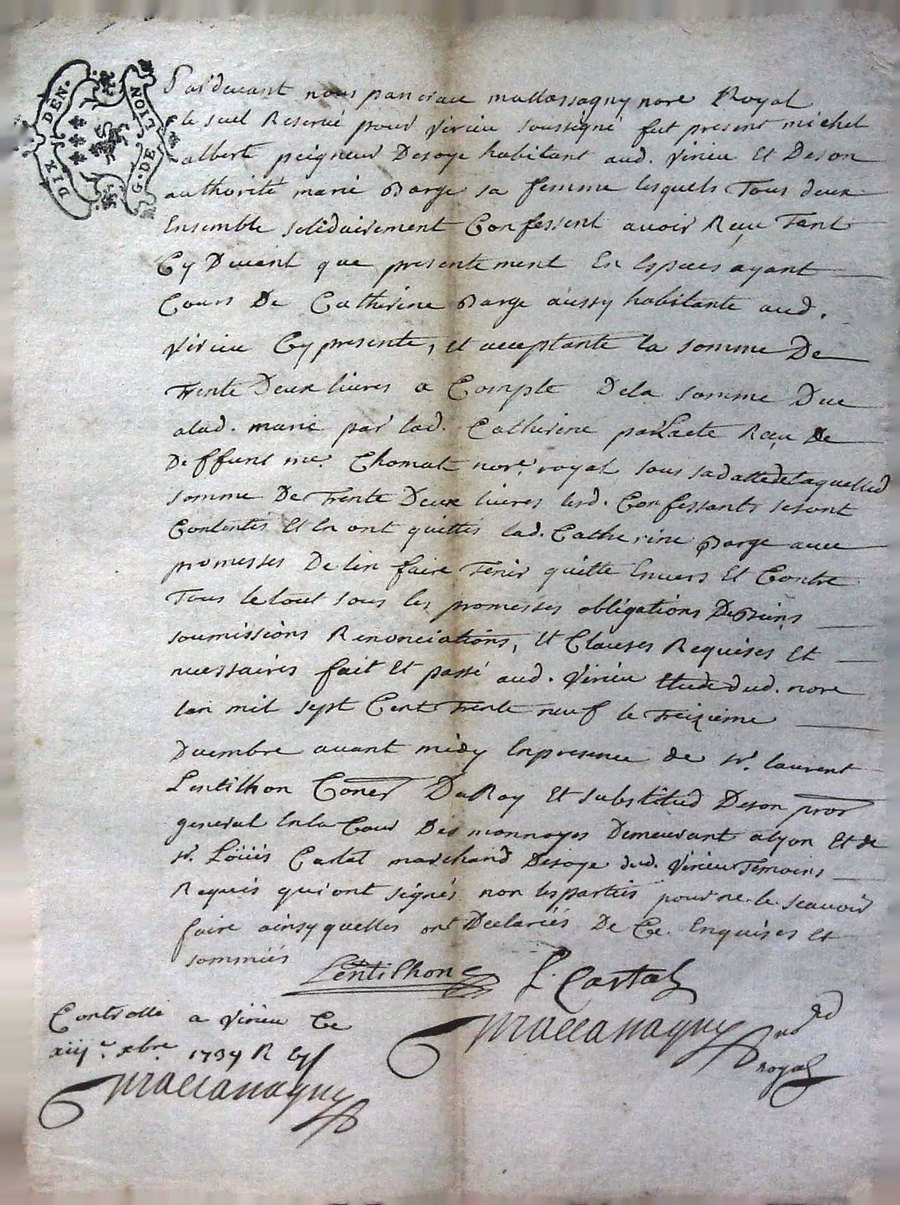 DIX DEN.
G. DE LION
Pardevant nous pancrace mallassagny nore Royal
le seel Reservé pour Virieu soussigné fut present michel
albert peigneur Desoye habitant aud. Virieu Et Deson
authorité marie Barge sa femme lesquels Tous deux
Ensemble solidairement Confessent avoir Reçu Tant
Cy Devant que presentement En Espaces ayant
Cours De Catherine Barge aussy habitante aud.
Virieu Cy presente, et acceptante la somme De
Trente Deux livres a Compte Dela somme Due
alad. marie par lad. Catherine par Lacte Reçu De
Deffunt me. Chomat nore. royal sous sadatte delaquelled
somme De Trente Deux livres lesd. Confessants sesont
Contentés Et En ont quittés lad. Catherine Barge avec
promesses De lin faire Tenir quitte Envers Et Contre
Tous le tout sous les promesses obligations De Biens
soumissions Renonciations, et Clauses Requises Et
necessaires fait Et passé aud. Virieu Etude dud. nore
lan mil sept Cent Trente neuf le Treizieme
Decembre avant midy Enpresence de Sr. laurent
Lentilhon Coner DuRoy Et substitud Deson pror
general Enla Cour Des monnoyes Demeurant alyon Et de
sr. Loüis Cartal marchand Desoye dud. Virieu Temoins
Requis qui ont signés non lesparties pour ne le sçavoir
faire ainsy quelles ont Declarées De Ce Enquises Et
sommées
Lentilhon
L. Cartal
Mallassagny
royal
Controllé a Virieu Ce
xiije. xbre. 1739 R
Mallassagny